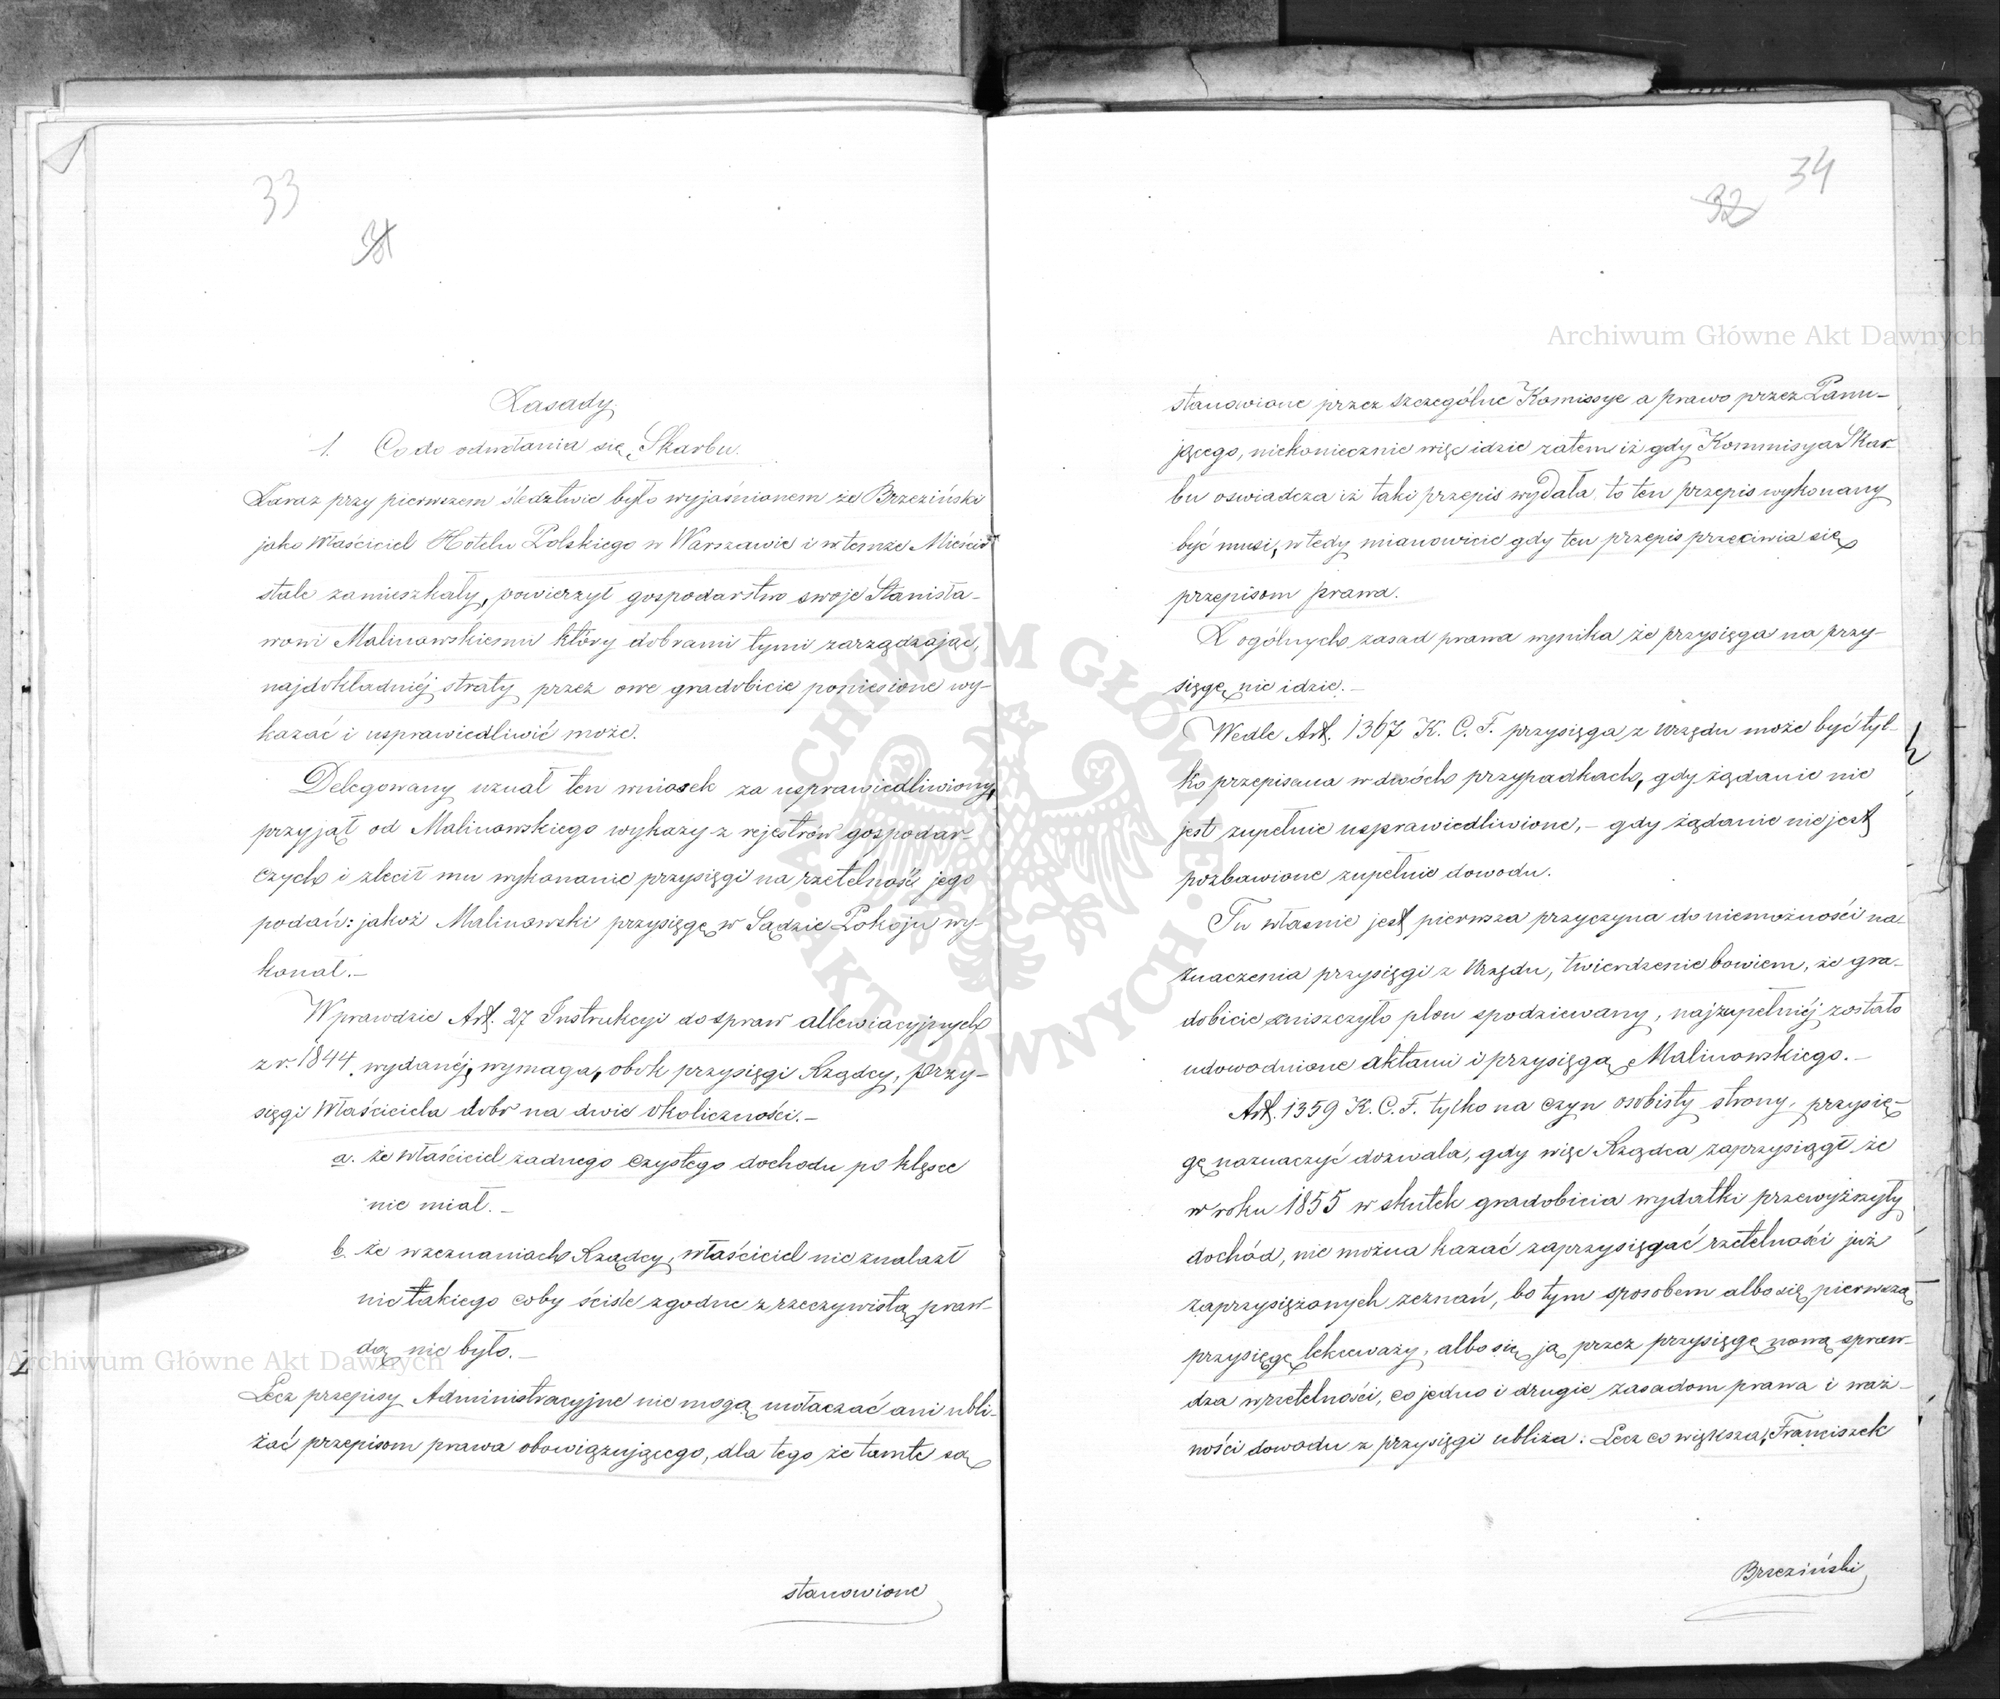 33
31
Zasady
1. Co do odwołania się Skarbu.
Zaraz przy pierwszem śledztwie było wyjaśnionem że Brzeziński
jako Właściciel Hotelu Polskiego w Warszawie i w temże Mieście
stale zamieszkały, powierzył gospodarstwo swoje Stanisła-
wowi Malinowskiemu który dobrami tymi zarządzając,
najdokładniéj straty przez owe gradobicie poniesione wy-
kazać i usprawiedliwić może.
Delegowany uznał ten wniosek za usprawiedliwiony,
przyjął od Malinowskiego wykazy z rejestrów gospodar-
czych i zlecił mu wykonanie przysięgi na rzetelność jego
podań: jakoż Malinowski przysięgę w Sądzie Pokoju wy-
konał.—
Wprawdzie Art. 27 Instrukcyi do spraw allewiacyjnych
z r. 1844 wydanéj, wymaga, obok przysięgi Rządcy, przy-
sięgi Właściciela dóbr na dwie okoliczności.—
a. że właściciel żadnego czystego dochodu po klęsce
nie miał.—
b. że w zeznaniach Rządcy, właściciel nie znalazł
nic takiego coby ściśle zgodne z rzeczywistą praw-
dą nie było.—
Lecz przepisy Administracyjne nie mogą uwłaczać ani ubli-
żać przepisom prawa obowiązującego, dla tego że tamte są
stanowione
34
32
stanowione przez szczególne Komissye a prawo przez Panu-
jącego, niekoniecznie więc idzie zatem iż gdy Kommisya Skar-
bu oswiadcza iż taki przepis wydała, to ten przepis wykonany
być musi, wtedy mianowicie gdy ten przepis przeciwia się
przepisom prawa.
Z ogólnych zasad prawa wynika że przysięga na przy-
sięgę nie idzie.—
Wedle Art. 1367 K. C. F. przysięga z Urzędu może być tyl-
ko przepisana w dwóch przypadkach, gdy żądanie nie
jest zupełnie usprawiedliwione,— gdy żądanie nie jest
pozbawione zupełnie dowodu.
Tu własnie jest pierwsza przyczyna do niemożności na-
znaczenia przysięgi z Urzędu, twierdzenie bowiem, że gra-
dobicie zniszczyło plon spodziewany, najzupełniéj zostało
udowodnione aktami i przysięgą Malinowskiego.—
Art. 1359 K. C. F. tylko na czyn osobisty strony, przysię-
gę naznaczyć dozwala, gdy więc Rządca zaprzysiągł że
w roku 1855 w skutek gradobicia wydatki przewyższyły
dochód, nie można kazać zaprzysięgać rzetelności już
zaprzysiężonych zeznań, bo tym sposobem albo się pierwszą
przysięgę lekceważy, albo się ją przez przysięgę nową spraw-
dza w rzetelności, co jedno i drugie zasadom prawa i waż-
ności dowodu z przysięgi ubliża: Lecz co większa, Franciszek
Brzeziński
Archiwum Główne Akt Dawnych
Archiwum Główne Akt Dawnych
ARCHIWUM GŁÓWNE · AKT DAWNYCH ·